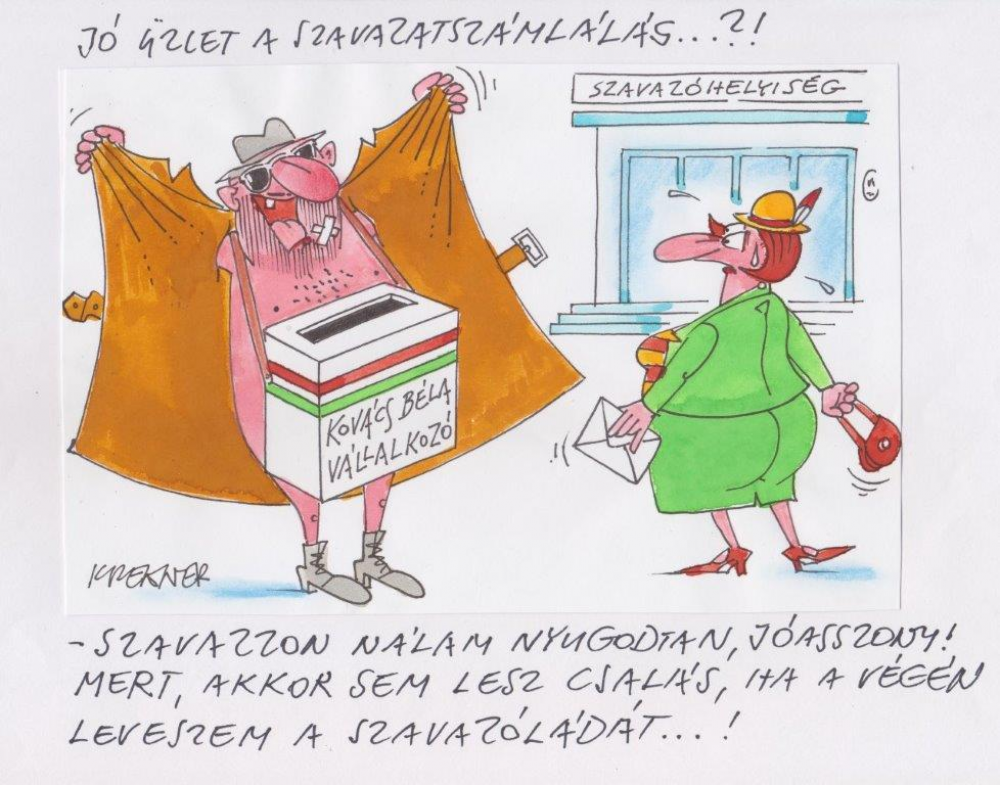 JÓ ÜZLET A SZAVAZATSZÁMLÁLÁS...?!
SZAVAZÓHELYISÉG
KOVÁCS BÉLA
VÁLLALKOZÓ
KREKNER
-SZAVAZZON NÁLAM NYUGODTAN, JÓASSZONY!
MERT, AKKOR SEM LESZ CSALÁS, HA A VÉGÉN
LEVESZEM A SZAVAZÓLÁDÁT...!